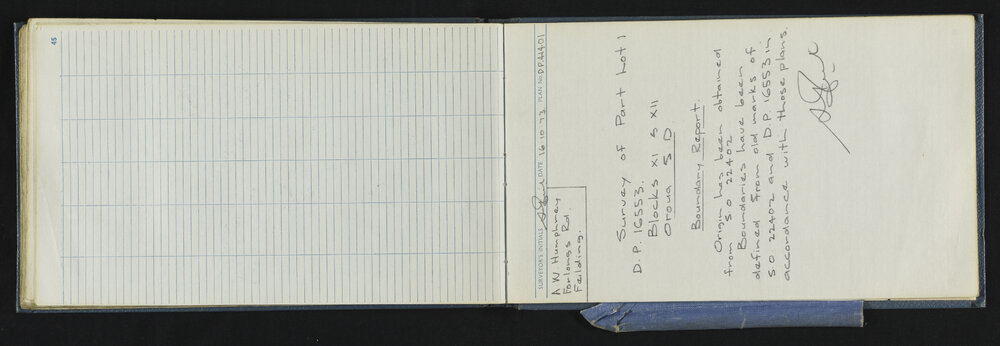 45
SURVEYOR'S INITIALS DATE 16.10.73 PLAN No. D.P.44401
A W Humphrey
Forlongs Rd.
Feilding.
Survey of Part Lot 1
D.P. 16553.
Blocks XI & XII
Oroua S D
Boundary Report.
Origin has been obtained
from S O 22402
Boundaries have been
defined from old marks of
S O 22402 and D.P. 16553 in
accordance with those plans.